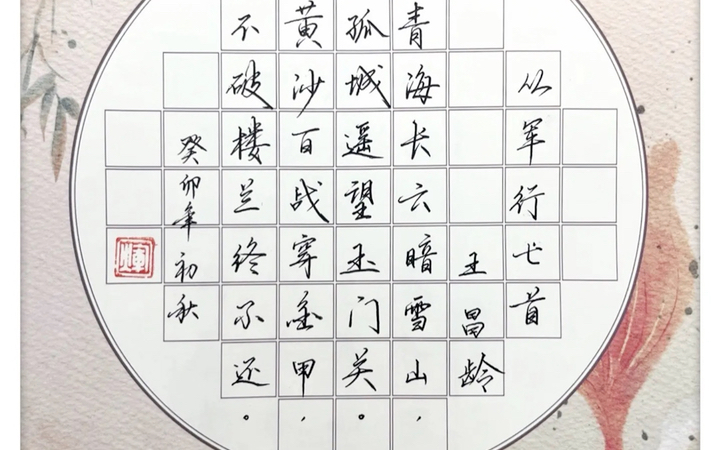 从军行七首
王昌龄
青海长云暗雪山，
孤城遥望玉门关。
黄沙百战穿金甲，
不破楼兰终不还。
癸卯年初秋